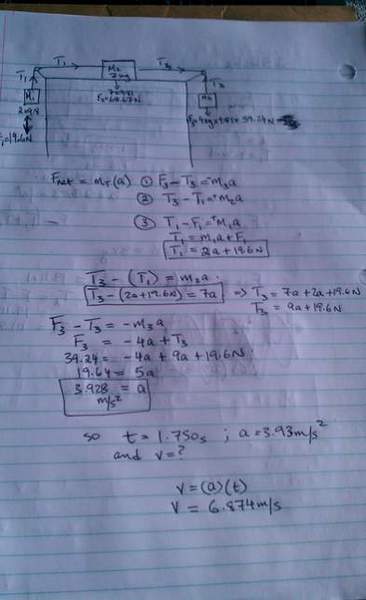 T₁ T₃
M₂
7 kg
T₁ T₃
M₁
F₂=68.67N
F₁=19.6N
Fnet = mT(a) ① F₃ - T₃ = m₃a
② T₃ - T₁ = m₂a
③ T₁ - F₁ = m₁a
T₁ = m₁a + F₁
T₁ = 2a + 19.6N
T₃ - (T₁) = m₂a
T₃ - (2a + 19.6N) = 7a ⇒ T₃ = 7a + 2a + 19.6N
T₃ = 9a + 19.6N
F₃ - T₃ = -m₃a
F₃ = -4a + T₃
39.24 = -4a + 9a + 19.6N
19.64 = 5a
3.928 = a
m/s²
so t = 1.750s ; a = 3.93m/s²
and v = ?
v = (a)(t)
V = 6.874m/s